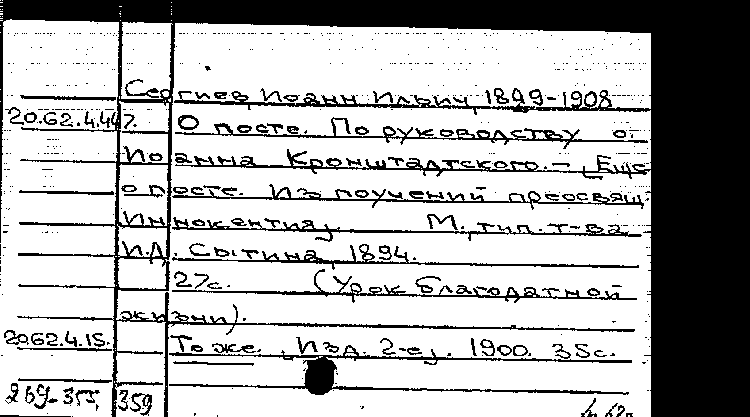 Сергиев, Иоанн Ильич, 1899-1908
20.62.4.447. О посте. По руководству о.
Иоанна Кронштадтского. — [Еще
о посте. Из поучений преосвящ.
Иннокентия]. М., тип. т-ва
И.Д. Сытина, 1894.
27с. (Урок благодатной
жизни).
2062.4.15. То же. [Изд. 2-е]. 1900. 35с.
359